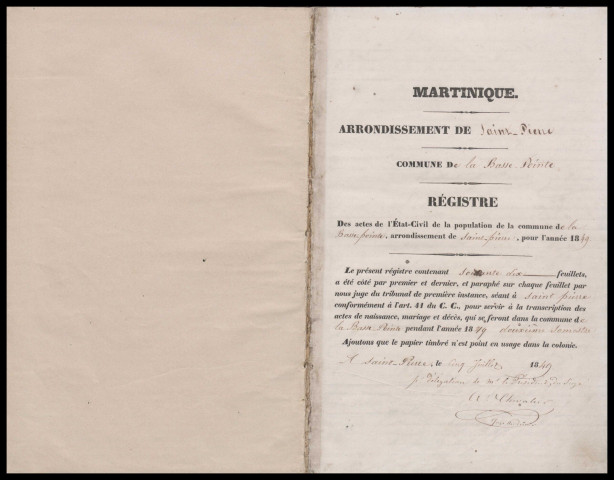 MARTINIQUE.
ARRONDISSEMENT DE Saint-Pierre
COMMUNE De la Basse-Pointe
RÉGISTRE
Des actes de l'État-Civil de la population de la commune de la
Basse-pointe, arrondissement de Saint-pierre, pour l'année 1849
Le présent régistre contenant soixante dix feuillets,
a été côté par premier et dernier, et paraphé sur chaque feuillet par
nous juge du tribunal de première instance, séant à Saint pierre
conformément à l'art. 41 du C. C., pour servir à la transcription des
actes de naissance, mariage et décès, qui se feront dans la commune de
la Basse Pointe pendant l'année 1849 deuxième semestre
Ajoutons que le papier timbré n'est point en usage dans la colonie.
A Saint-Pierre, le cinq Juillet 1849
pr délégation de Mr le Président